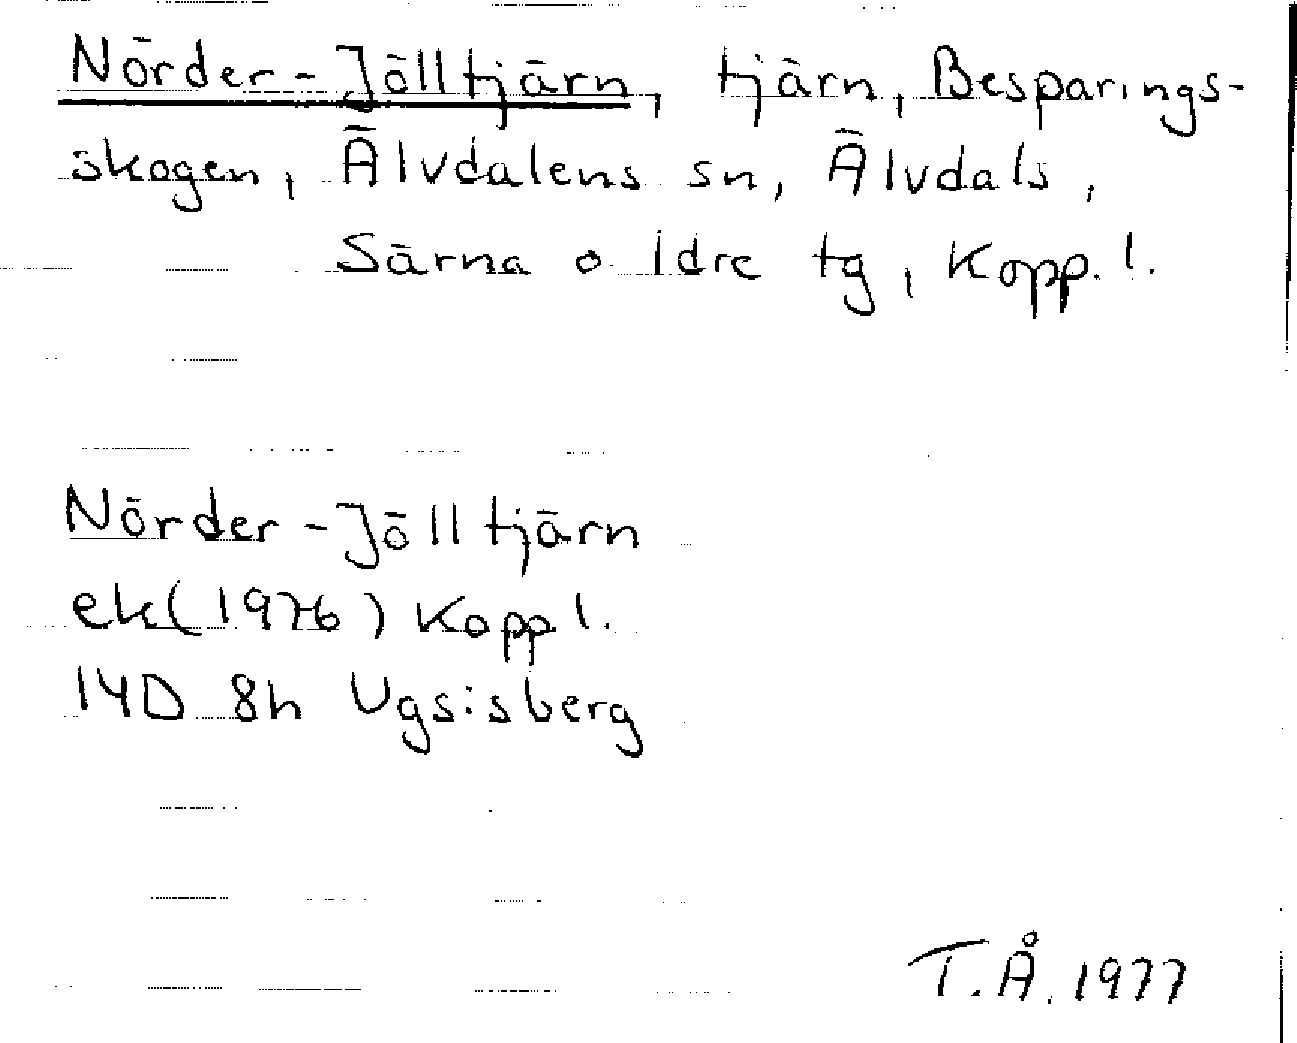 Nörder-Jölltjärn, tjärn, Besparings-
skogen, Älvdalens sn, Älvdals,
Särna o Idre tg, Kopp. l.
Nörder-Jölltjärn
ek(1976) Kopp l.
14D 8h Ugsisberg
T.Å. 1977